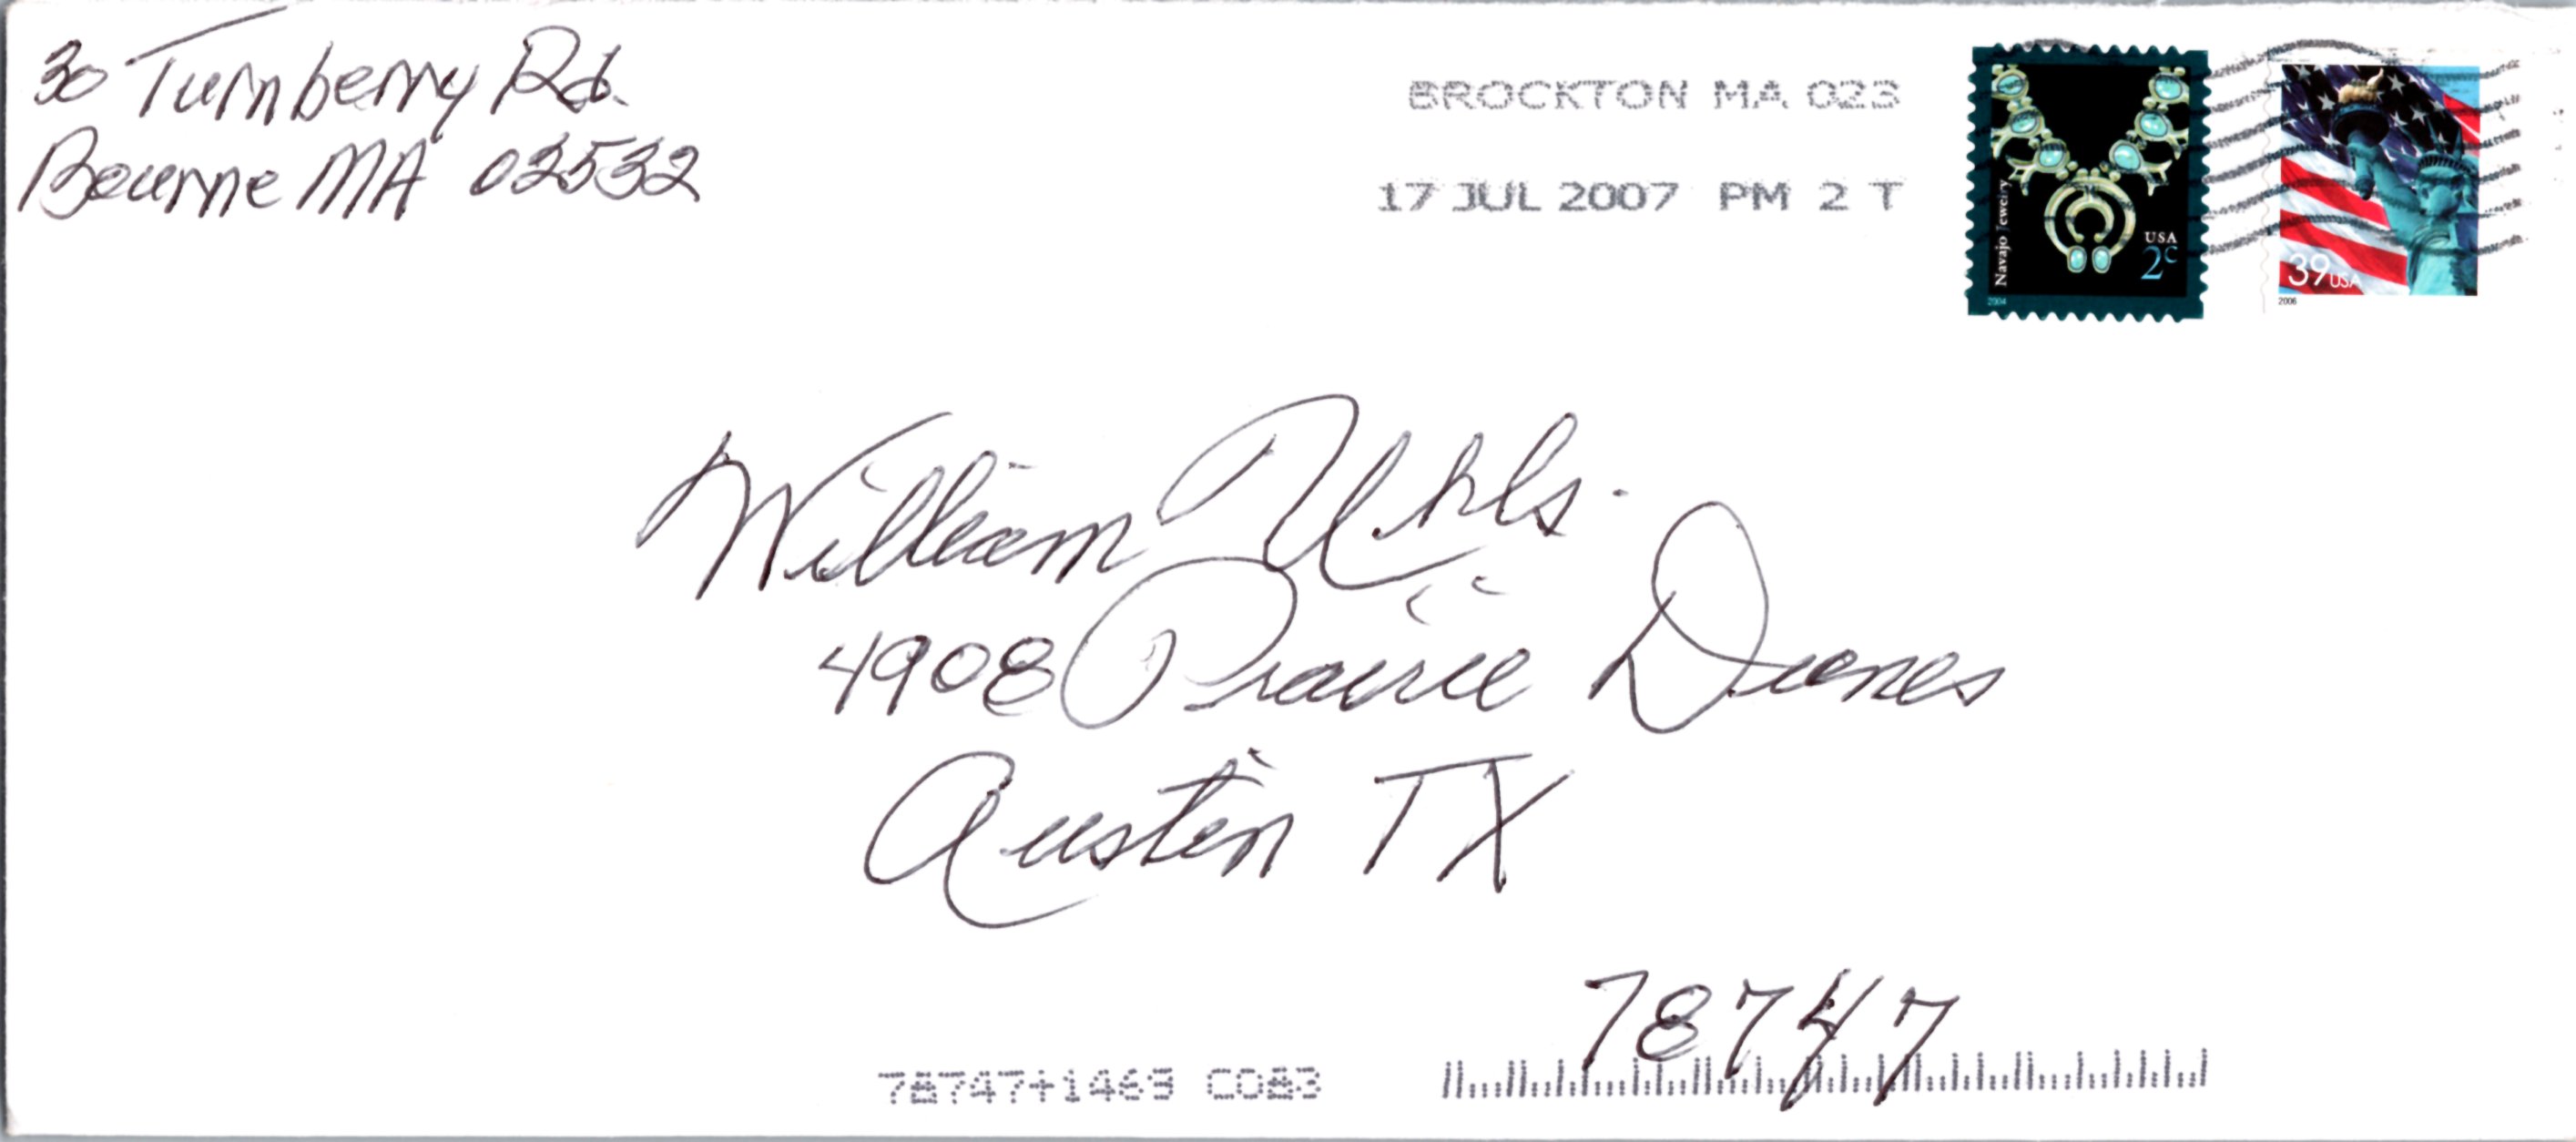 30 Turnberry Rd.
Bourne MA 02532
BROCKTON MA 023
17 JUL 2007 PM 2 T
Navajo Jewelry
USA
2c
2004
39 USA
2006
William Uhls.
4908 Prairie Dunes
Austin TX
78747
78747+1463 C083